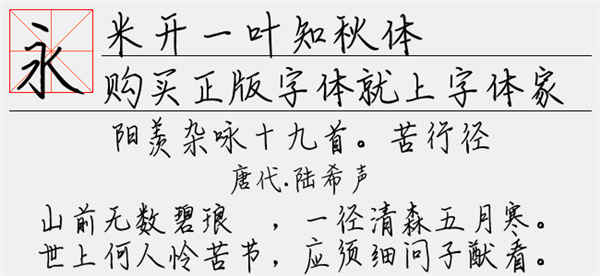 永
米开一叶知秋体
购买正版字体就上字体家
阳羡杂咏十九首。苦行径
唐代.陆希声
山前无数碧琅 ，一径清森五月寒。
世上何人怜苦节，应须细问子猷看。